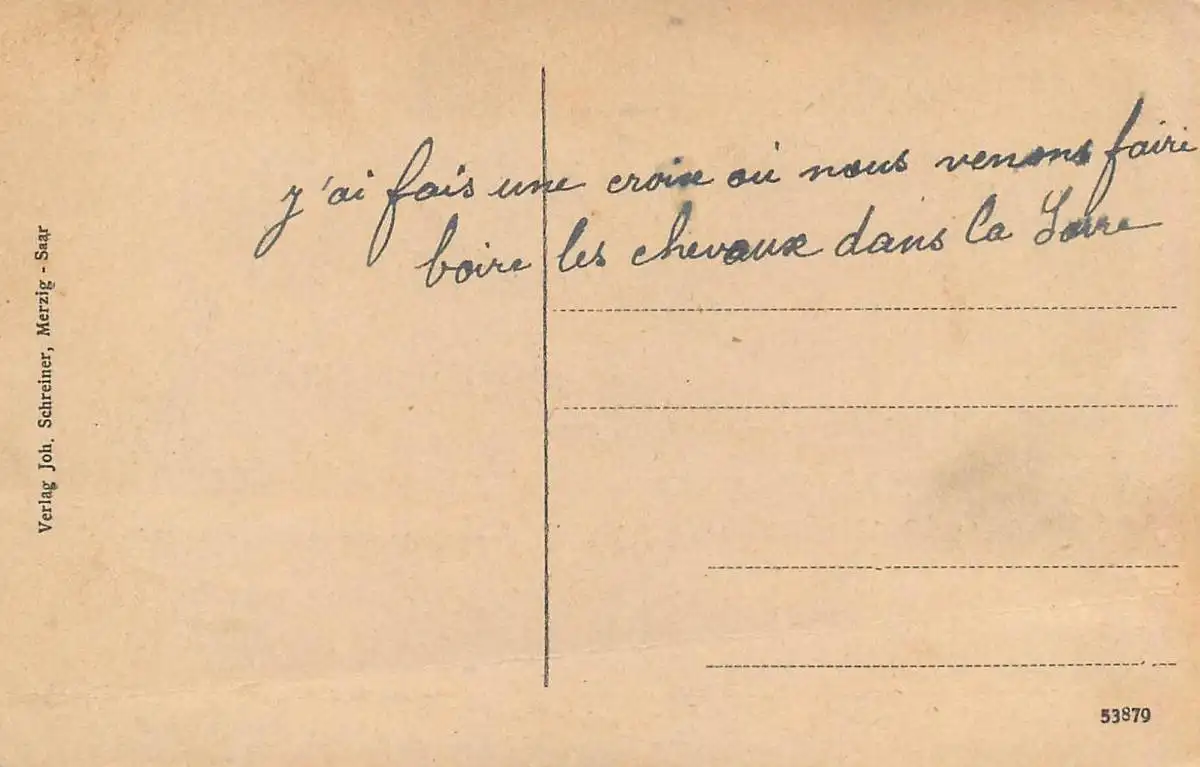 j'ai fais une croix où nous venons faire
boire les chevaux dans la Sarre
Verlag Joh. Schreiner, Merzig - Saar
53879